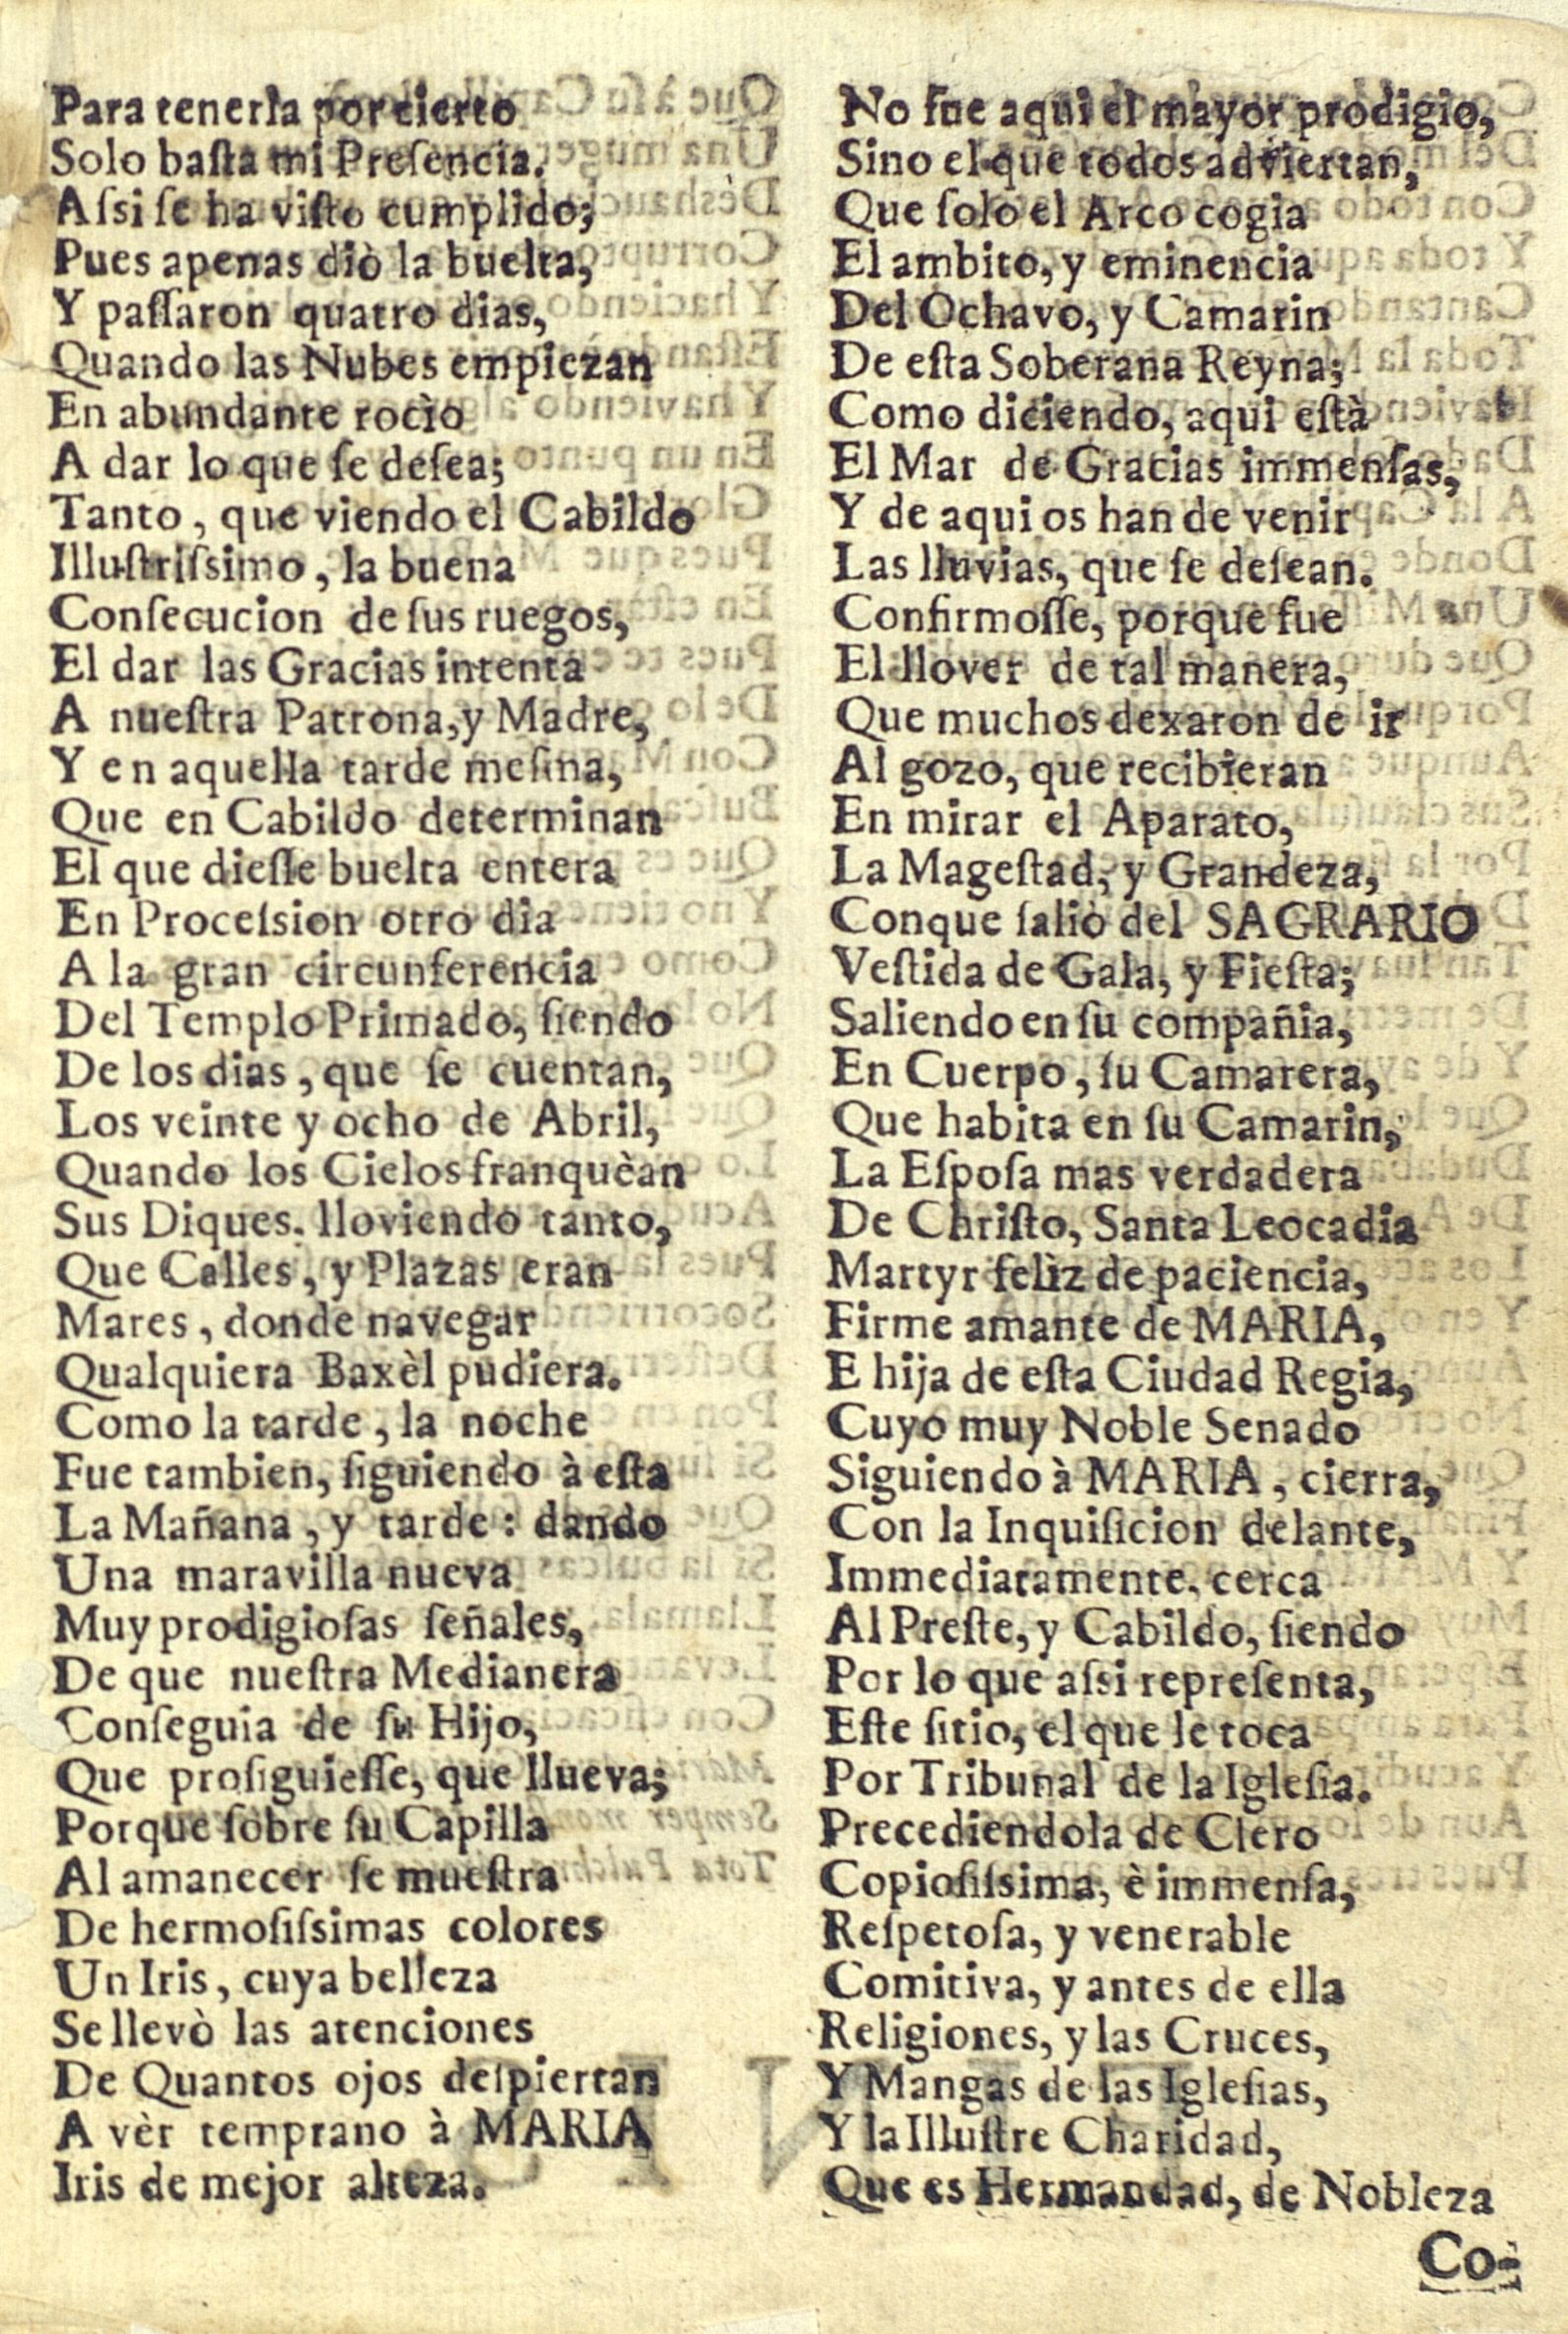 Para tenerla por cierto
Solo baſta mi Preſencia.
Aſsi ſe ha viſto cumplido;
Pues apenas diò la buelta,
Y paſſaron quatro dias,
Quando las Nubes empiezan
En abundante rocìo
A dar lo que ſe deſea;
Tanto, que viendo el Cabildo
Illuſtriſsimo, la buena
Conſecucion de ſus ruegos,
El dar las Gracias intenta
A nueſtra Patrona, y Madre,
Y en aquella tarde meſma,
Que en Cabildo determinan
El que dieſſe buelta entera
En Proceſsion otro dia
A la gran circunferencia
Del Templo Primado, ſiendo
De los dias, que ſe cuentan,
Los veinte y ocho de Abril,
Quando los Cielos franquèan
Sus Diques. lloviendo tanto,
Que Calles, y Plazas eran
Mares, donde navegar
Qualquiera Baxèl pudiera.
Como la tarde, la noche
Fue tambien, ſiguiendo à eſta
La Mañana, y tarde: dando
Una maravilla nueva
Muy prodigioſas ſeñales,
De que nueſtra Medianera
Conſeguia de ſu Hijo,
Que proſiguieſſe, que llueva;
Porque ſobre ſu Capilla
Al amanecer ſe mueſtra
De hermoſiſsimas colores
Un Iris, cuya belleza
Se llevò las atenciones
De Quantos ojos deſpiertan
A vèr temprano à MARIA
Iris de mejor alteza.
No fue aqui el mayor prodigio,
Sino el que todos adviertan,
Que ſolo el Arco cogia
El ambito, y eminencia
Del Ochavo, y Camarin
De eſta Soberana Reyna;
Como diciendo, aqui eſtà
El Mar de Gracias immenſas,
Y de aqui os han de venir
Las lluvias, que ſe deſean.
Confirmoſſe, porque fue
El llover de tal manera,
Que muchos dexaron de ir
Al gozo, que recibieran
En mirar el Aparato,
La Mageſtad, y Grandeza,
Conque ſaliò del SAGRARIO
Veſtida de Gala, y Fieſta;
Saliendo en ſu compañia,
En Cuerpo, ſu Camarera,
Que habita en ſu Camarin,
La Eſpoſa mas verdadera
De Chriſto, Santa Leocadia
Martyr felìz de paciencia,
Firme amante de MARIA,
E hija de eſta Ciudad Regia,
Cuyo muy Noble Senado
Siguiendo à MARIA, cierra,
Con la Inquiſicion delante,
Immediatamente. cerca
Al Preſte, y Cabildo, ſiendo
Por lo que aſsi repreſenta,
Eſte ſitio, el que le toca
Por Tribunal de la Igleſia.
Precediendola de Clero
Copioſiſsima, è immenſa,
Reſpetoſa, y venerable
Comitiva, y antes de ella
Religiones, y las Cruces,
Y Mangas de las Igleſias,
Y la Illuſtre Charidad,
Que es Hermandad, de Nobleza
Co-